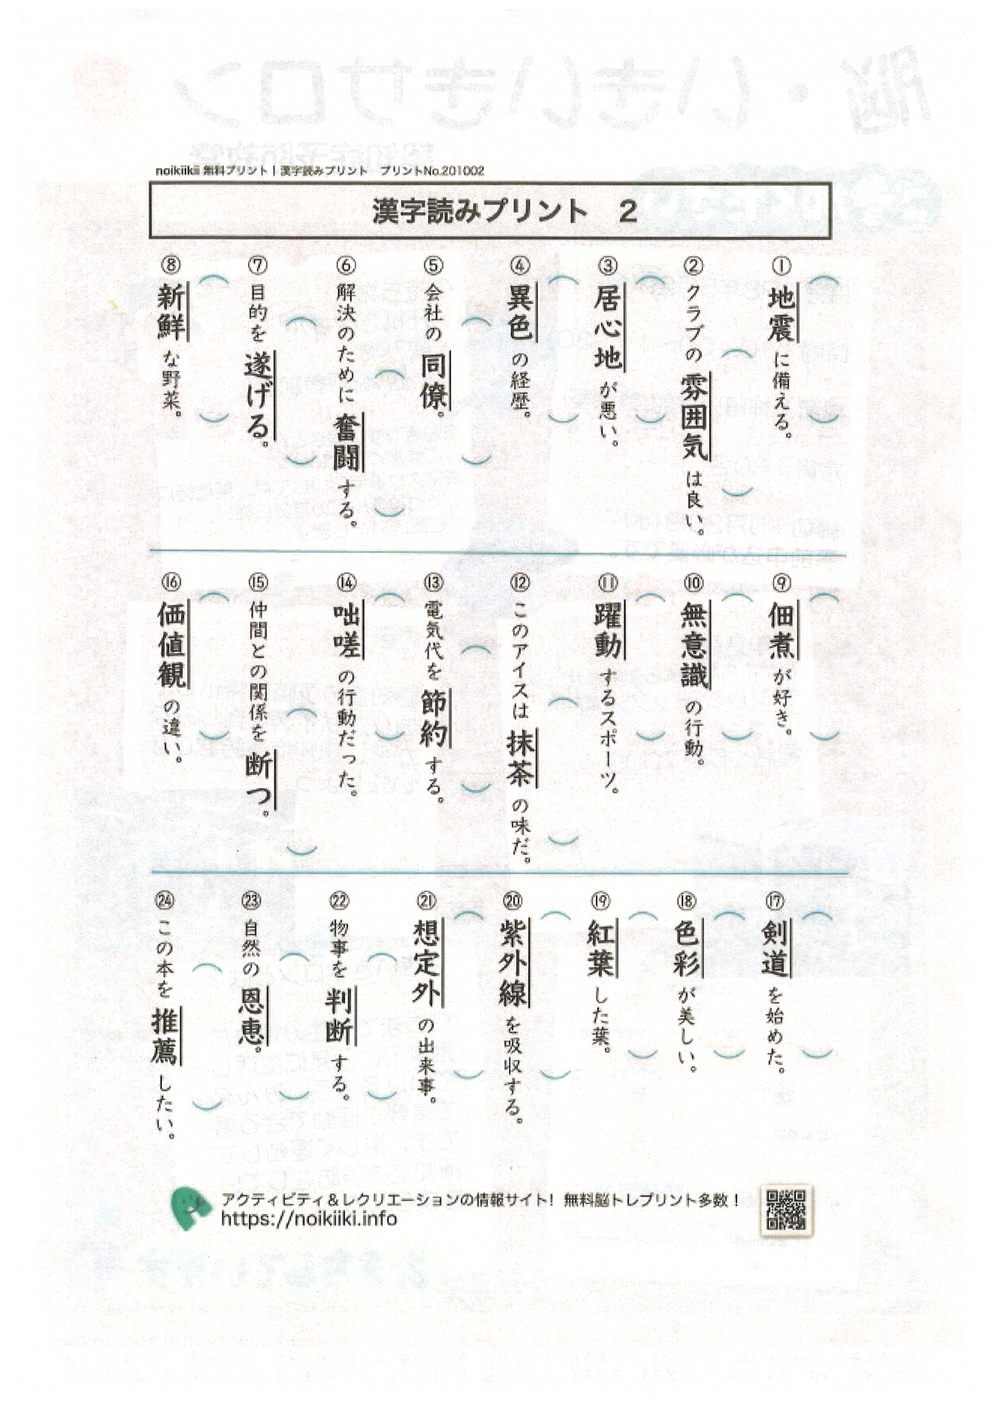 noikiikii 無料プリント | 漢字読みプリント　プリントNo.201002
漢字読みプリント　2
① 地震に備える。
② クラブの雰囲気は良い。
③ 居心地が悪い。
④ 異色の経歴。
⑤ 会社の同僚。
⑥ 解決のために奮闘する。
⑦ 目的を遂げる。
⑧ 新鮮な野菜。
⑨ 佃煮が好き。
⑩ 無意識の行動。
⑪ 躍動するスポーツ。
⑫ このアイスは抹茶の味だ。
⑬ 電気代を節約する。
⑭ 咄嗟の行動だった。
⑮ 仲間との関係を断つ。
⑯ 価値観の違い。
⑰ 剣道を始めた。
⑱ 色彩が美しい。
⑲ 紅葉した葉。
⑳ 紫外線を吸収する。
㉑ 想定外の出来事。
㉒ 物事を判断する。
㉓ 自然の恩恵。
㉔ この本を推薦したい。
アクティビティ＆レクリエーションの情報サイト！無料脳トレプリント多数！
https://noikiiki.info
脳・いきいきサロン
認知症予防教室